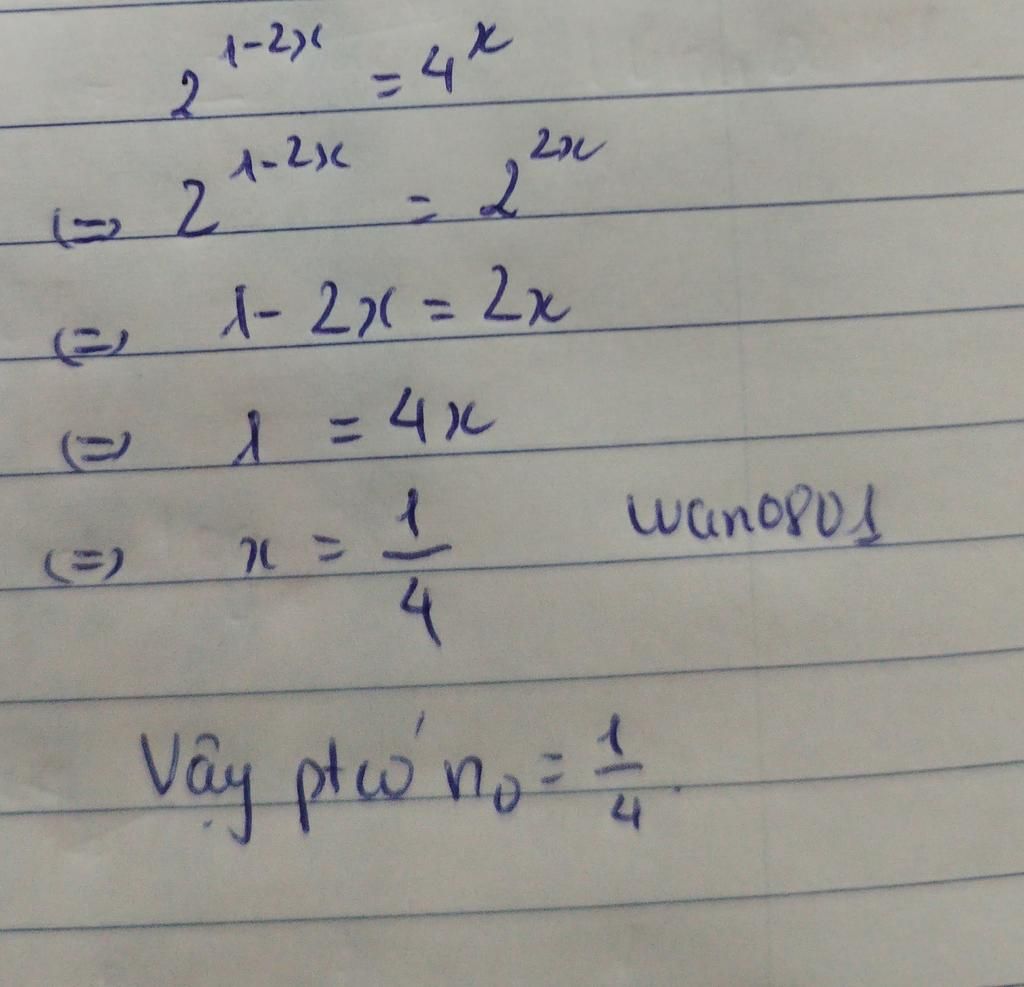 2^{1-2x} = 4^x
(=) 2^{1-2x} = 2^{2x}
(=) 1 - 2x = 2x
(=) 1 = 4x
(=) x = \frac{1}{4}
wan0801
Vậy pt có n_0 = \frac{1}{4}.